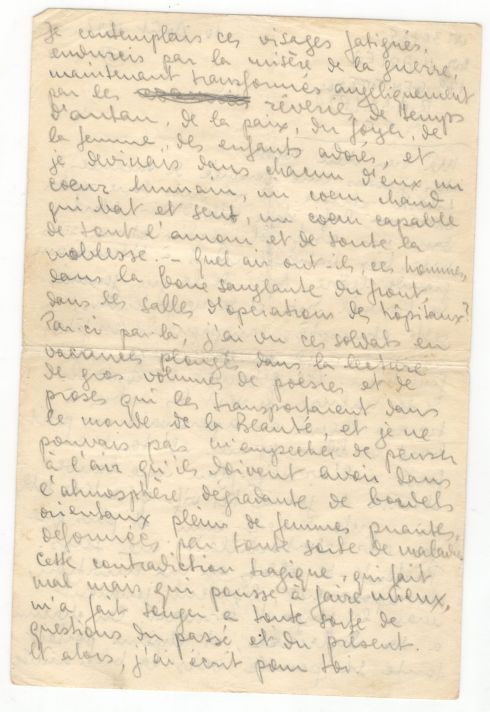 Je contemplais ces visages fatigués,
endurcis par la misère de la guerre,
maintenant transformés angéliquement
par les rêveries de temps
d'antan, de la paix, du foyer, de
la femme, des enfants adorés, et
je devinais dans chacun d'eux un
coeur humain, un coeur chaud,
qui bat et sent, un coeur capable
de tout l'amour et de toute la
noblesse. – Quel air ont-ils, ces hommes,
dans la boue sanglante du front,
dans les salles d'opérations des hôpitaux?
Par-ci par-là, j'ai vu ces soldats en
vacances plongés dans la lecture
de gros volumes de poésies et de
proses qui les transportaient dans
le monde de la Beauté, et je ne
pouvais pas m'empecher de penser
à l'air qu'ils doivent avoir dans
l'atmosphère dégradante de bordels
orientaux pleins de femmes puantes,
déformées par toute sorte de maladies.
Cette contradiction tragique, qui fait
mal mais qui pousse à faire mieux,
m'a fait songer à toute sorte de
questions du passé et du présent.
Et alors, j'ai écrit pour toi.